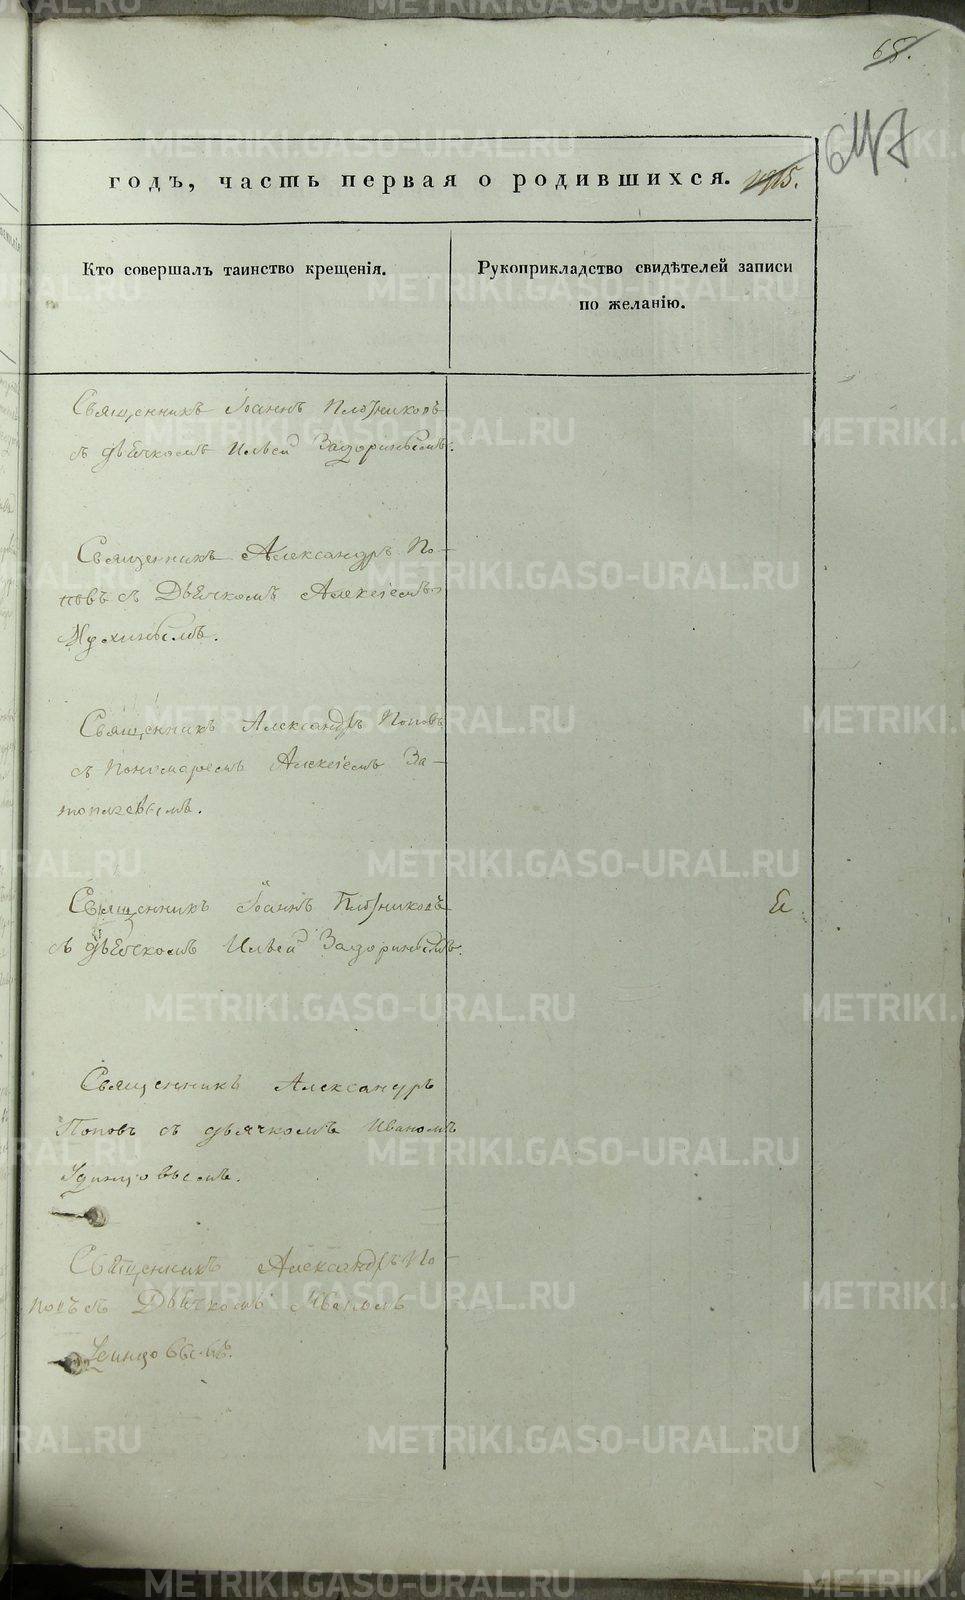 68.
647
годъ, часть первая о родившихся.
Кто совершалъ таинство крещенія.
Рукоприкладство свидѣтелей записи
по желанію.
Священникъ Іоаннъ Плотниковъ
съ дьячкомъ Ильей Задоринымъ.
Священникъ Александръ По-
повъ съ Дьячкомъ Алексіемъ
Мухинымъ.
Священникъ Александръ Поповъ
съ Пономаремъ Алексіемъ За-
топляевымъ.
Священникъ Іоаннъ Плотниковъ
съ дьячкомъ Ильей Задоринымъ.
Священникъ Александръ
Поповъ съ дьячкомъ Иваномъ
Удинцовымъ.
Священникъ Александръ По-
повъ съ Дьячкомъ Иваномъ
Удинцовымъ.
METRIKI.GASO-URAL.RU